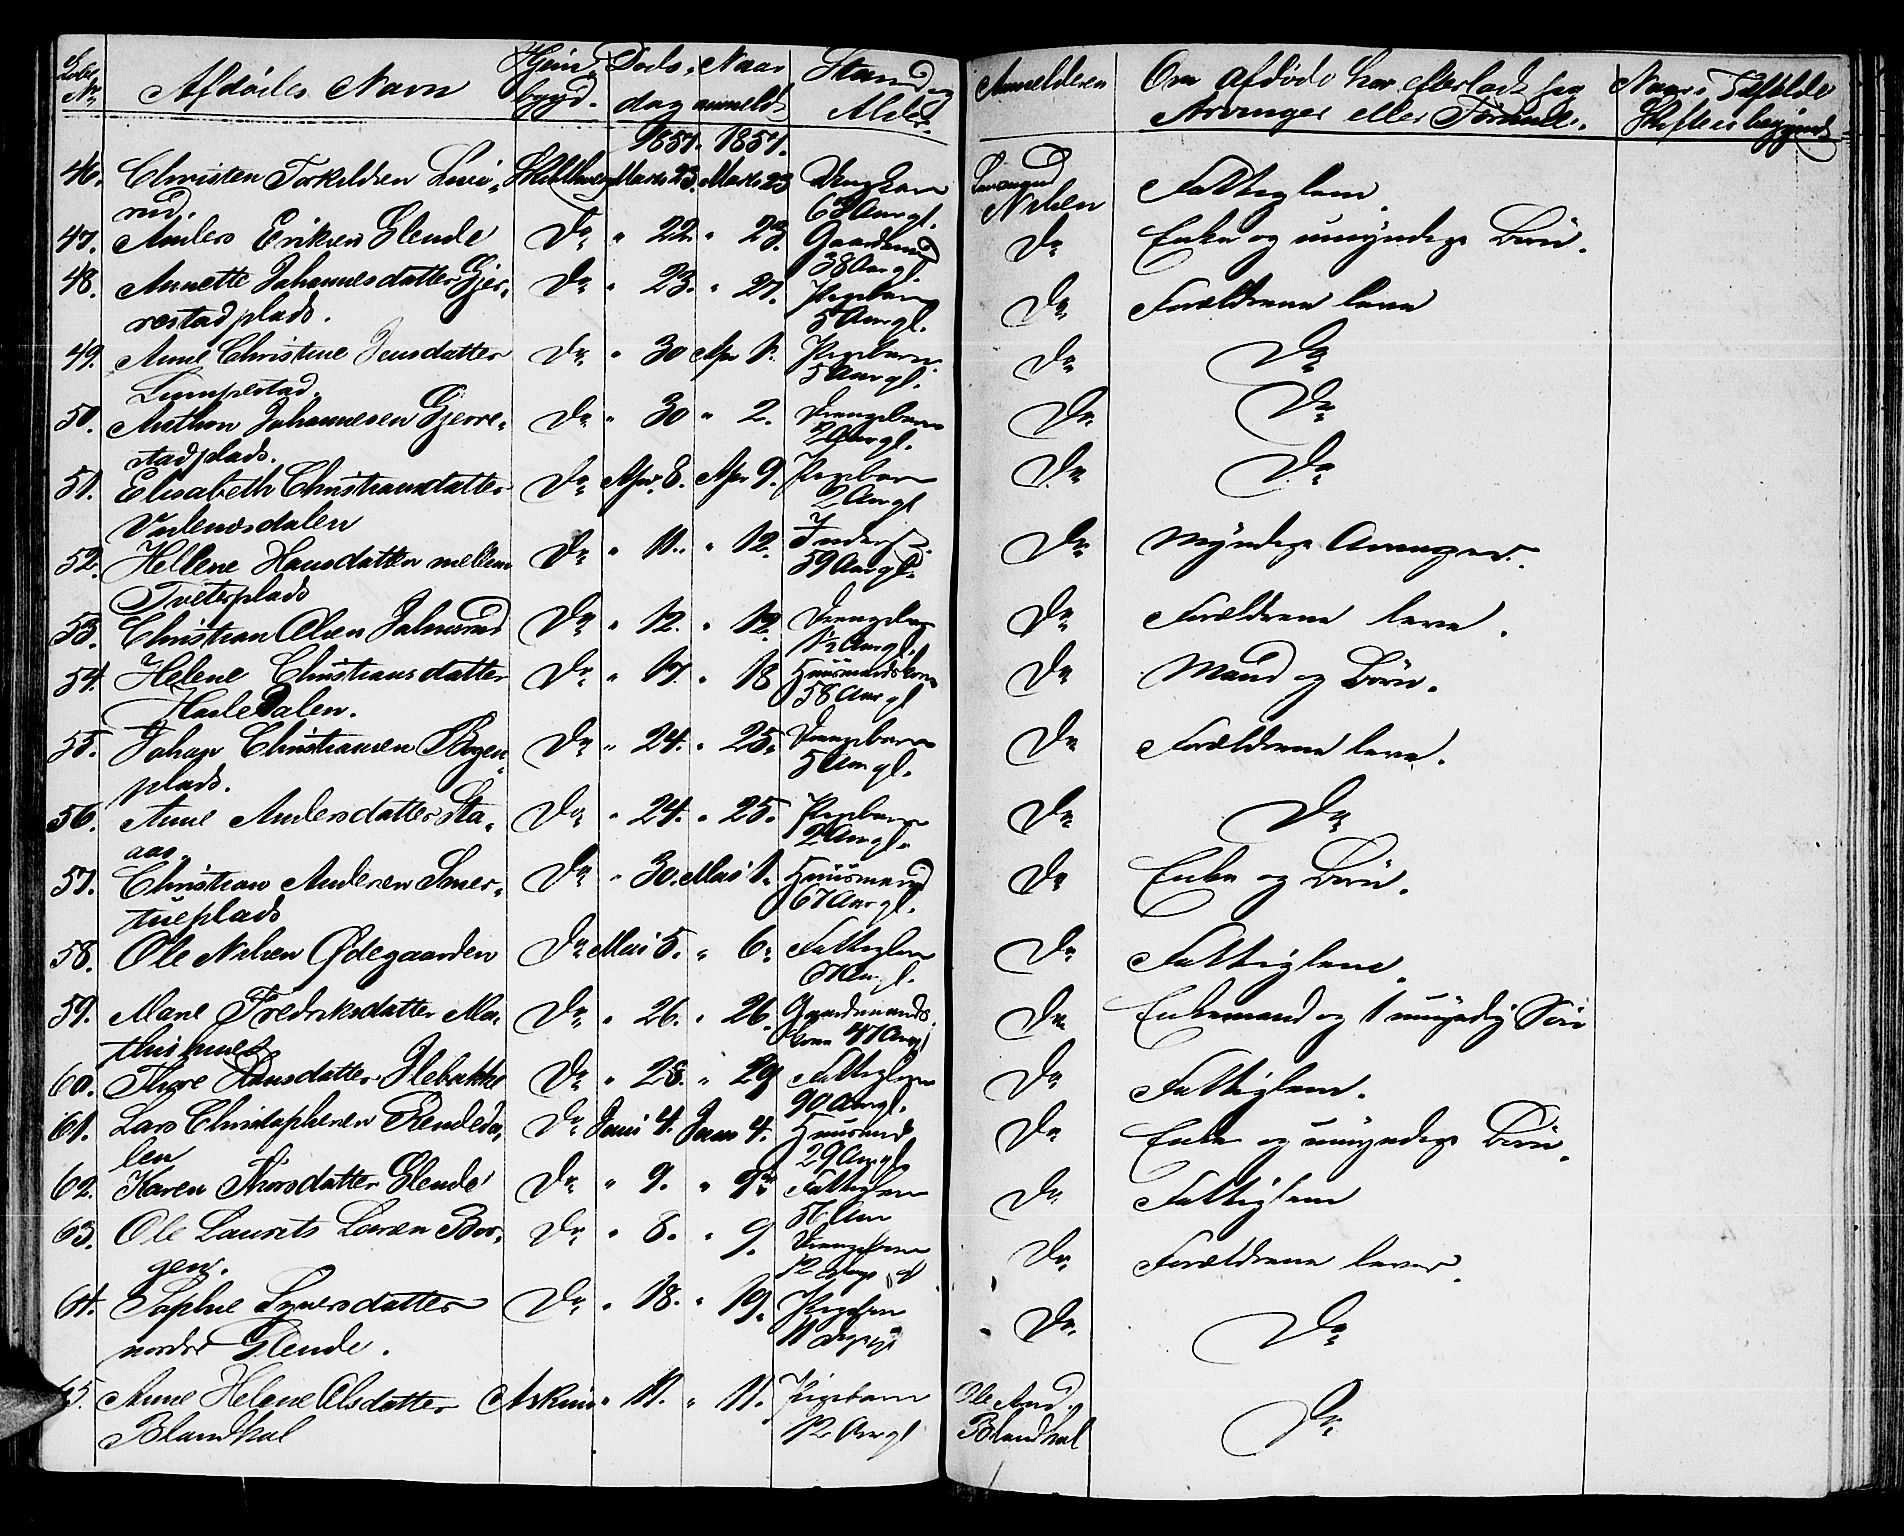 Løbe No | Afdødes Navn | Hjembygd. | Døds-dag | Naar anmeldt | Stand og Alder. | Anmelderen | Om afdøde har efterladt sig Arvinger eller Formue. | Naar i Tilfælde Skiftet begyndt
1857. 1857.
46. Christen Torkildsen | Marts 23. | Marts 23 | 63 Aar gl. | Nilsen | Fattiglem.
rud.
47. Anders Eriksen Glende | Do | " 22. | " 23. | Gaardmand 38 Aar gl. | Do | Enke og umyndige Børn.
48. Annette Johannesdatter Gjer- | Do | " 23. | " 27. | Pigebarn 5 Aar gl. | Do | Forældrene leve
restadplads.
49. Anne Christine Jensdatter | Do | " 30 | Apr 1. | Pigebarn 5 Aar gl. | Do | Do
50. Anthon Johannesen Gjerre- | Do | " 30 | " 2. | Drengebarn 2 Aar gl. | Do | Do
stadplads.
51. Elisabeth Christiansdatter | Do | Apr. 8. | Apr 9. | Pigebarn 2 Aar gl | Do | Do
52. Hellene Hansdatter mellem | Do | " 11. | " 12. | Inderst. 59 Aar gl. | Do | Myndige Arvinger.
Tveterplads
53. Christian Olsen | Do | " 12. | " 12. | 1½ Aar gl. | Do | Forældrene leve.
54. Helene Christiansdatter | Do | " 17. | " 18 | Huusmandskone 58 Aar gl | Do | Mand og Børn.
Hasledalen.
55. Johan Christiansen Bogen- | Do | " 24. | " 25. | Drengebarn 5 Aar gl. | Do | Forældrene leve.
plads.
56. Anne Andersdatter Sta- | Do | " 24. | " 25. | Pigebarn 2 Aar gl. | Do | Do
aas.
57. Christian Andersen Smer- | Do | " 30. | Mai 1. | Huusmand 67 Aar gl. | Do | Enke og Børn.
tueplads
58. Ole Nilsen Ødegaarden | Do | Mai 5. | " 6. | Fattiglem | Do | Fattiglem.
59. Marie Fredriksdatter Ma- | Do | " 26. | " 26. | Gaardmands- kone 47 Aar gl | Do | Enkemand og 1 umyndig Søn
60. Thore Hansdatter Ilebakke | Do | " 28. | " 29 | Fattiglem 90 Aar gl. | Do | Fattiglem.
61. Lars Christophersen Rendeda- | Do | Juni 4. | Juni 4. | Huusmd 29 Aar gl. | Do | Enke og umyndige Børn.
len
62. Karen Thorsdatter Glende | Do | " 9. | " 9. | Fattiglem 56 Aar | Do | Fattiglem
63. Ole Laurits Larsen Bor- | Do | " 8. | " 9. | Drengebarn 12 Dage gl | Do | Forældrene lever.
gen.
64. Sophie Syversdatter | Do | " 18. | " 19. | Pigebarn 11 Dage gl | Do | Do
nordre Glende.
65. Anne Helene Olsdatter | Askim | " 11. | " 11. | Pigebarn 12 Aar gl | Ole And. Blandkal | Do
Blandkal